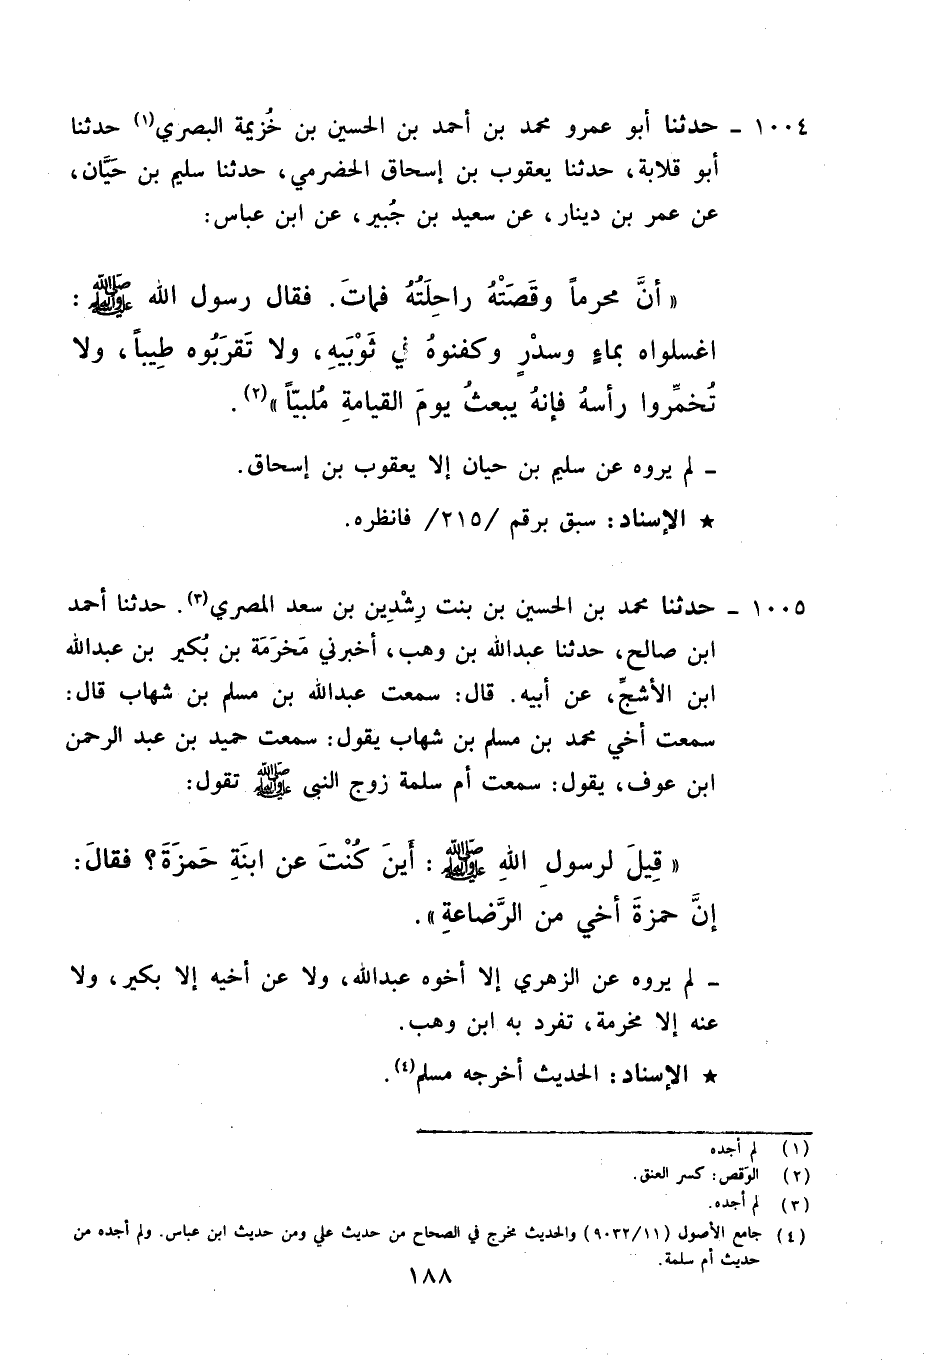 ١٠٠٤ ـ حدثنا أبو عمرو محمد بن أحمد بن الحسين بن خُزيمة البصري(١) حدثنا
أبو قلابة، حدثنا يعقوب بن إسحاق الحضرمي، حدثنا سليم بن حَيَّان،
عن عمر بن دينار، عن سعيد بن جُبير، عن ابن عباس:
« أنَّ محرماً وقَصَتْهُ راحِلَتُهُ فماتَ. فقال رسول الله ﷺ :
اغسلواه بماءٍ وسدْرٍ وكفنوهُ في ثَوْبَيهِ، ولا تَقرَبُوه طِيباً، ولا
تُخمِّروا رأسهُ فإنهُ يبعثُ يومَ القيامةِ مُلبيّاً »(٢).
ـ لم يروه عن سليم بن حيان إلا يعقوب بن إسحاق.
★ الإسناد: سبق برقم /٢١٥/ فانظره.
١٠٠٥ ـ حدثنا محمد بن الحسين بن بنت رِشْدِين بن سعد المصري(٣). حدثنا أحمد
ابن صالح، حدثنا عبدالله بن وهب، أخبرني مَخرَمَة بن بُكير بن عبدالله
ابن الأشجِّ، عن أبيه. قال: سمعت عبدالله بن مسلم بن شهاب قال:
سمعت أخي محمد بن مسلم بن شهاب يقول: سمعت حميد بن عبد الرحمن
ابن عوف، يقول: سمعت أم سلمة زوج النبي ﷺ تقول:
« قِيلَ لرسولِ اللهِ ﷺ : أَينَ كُنْتَ عن ابنَةِ حَمزَةَ؟ فقالَ:
إنَّ حمزةَ أخي من الرَّضاعةِ».
ـ لم يروه عن الزهري إلا أخوه عبدالله، ولا عن أخيه إلا بكير، ولا
عنه إلا مخرمة، تفرد به ابن وهب.
★ الإسناد: الحديث أخرجه مسلم(٤).
(١) لم أجده
(٢) الوَقص: كسر العنق.
(٣) لم أجده.
(٤) جامع الأصول (٩٠٣٢/١١) والحديث مخرج في الصحاح من حديث علي ومن حديث ابن عباس. ولم أجده من
حديث أم سلمة.
١٨٨